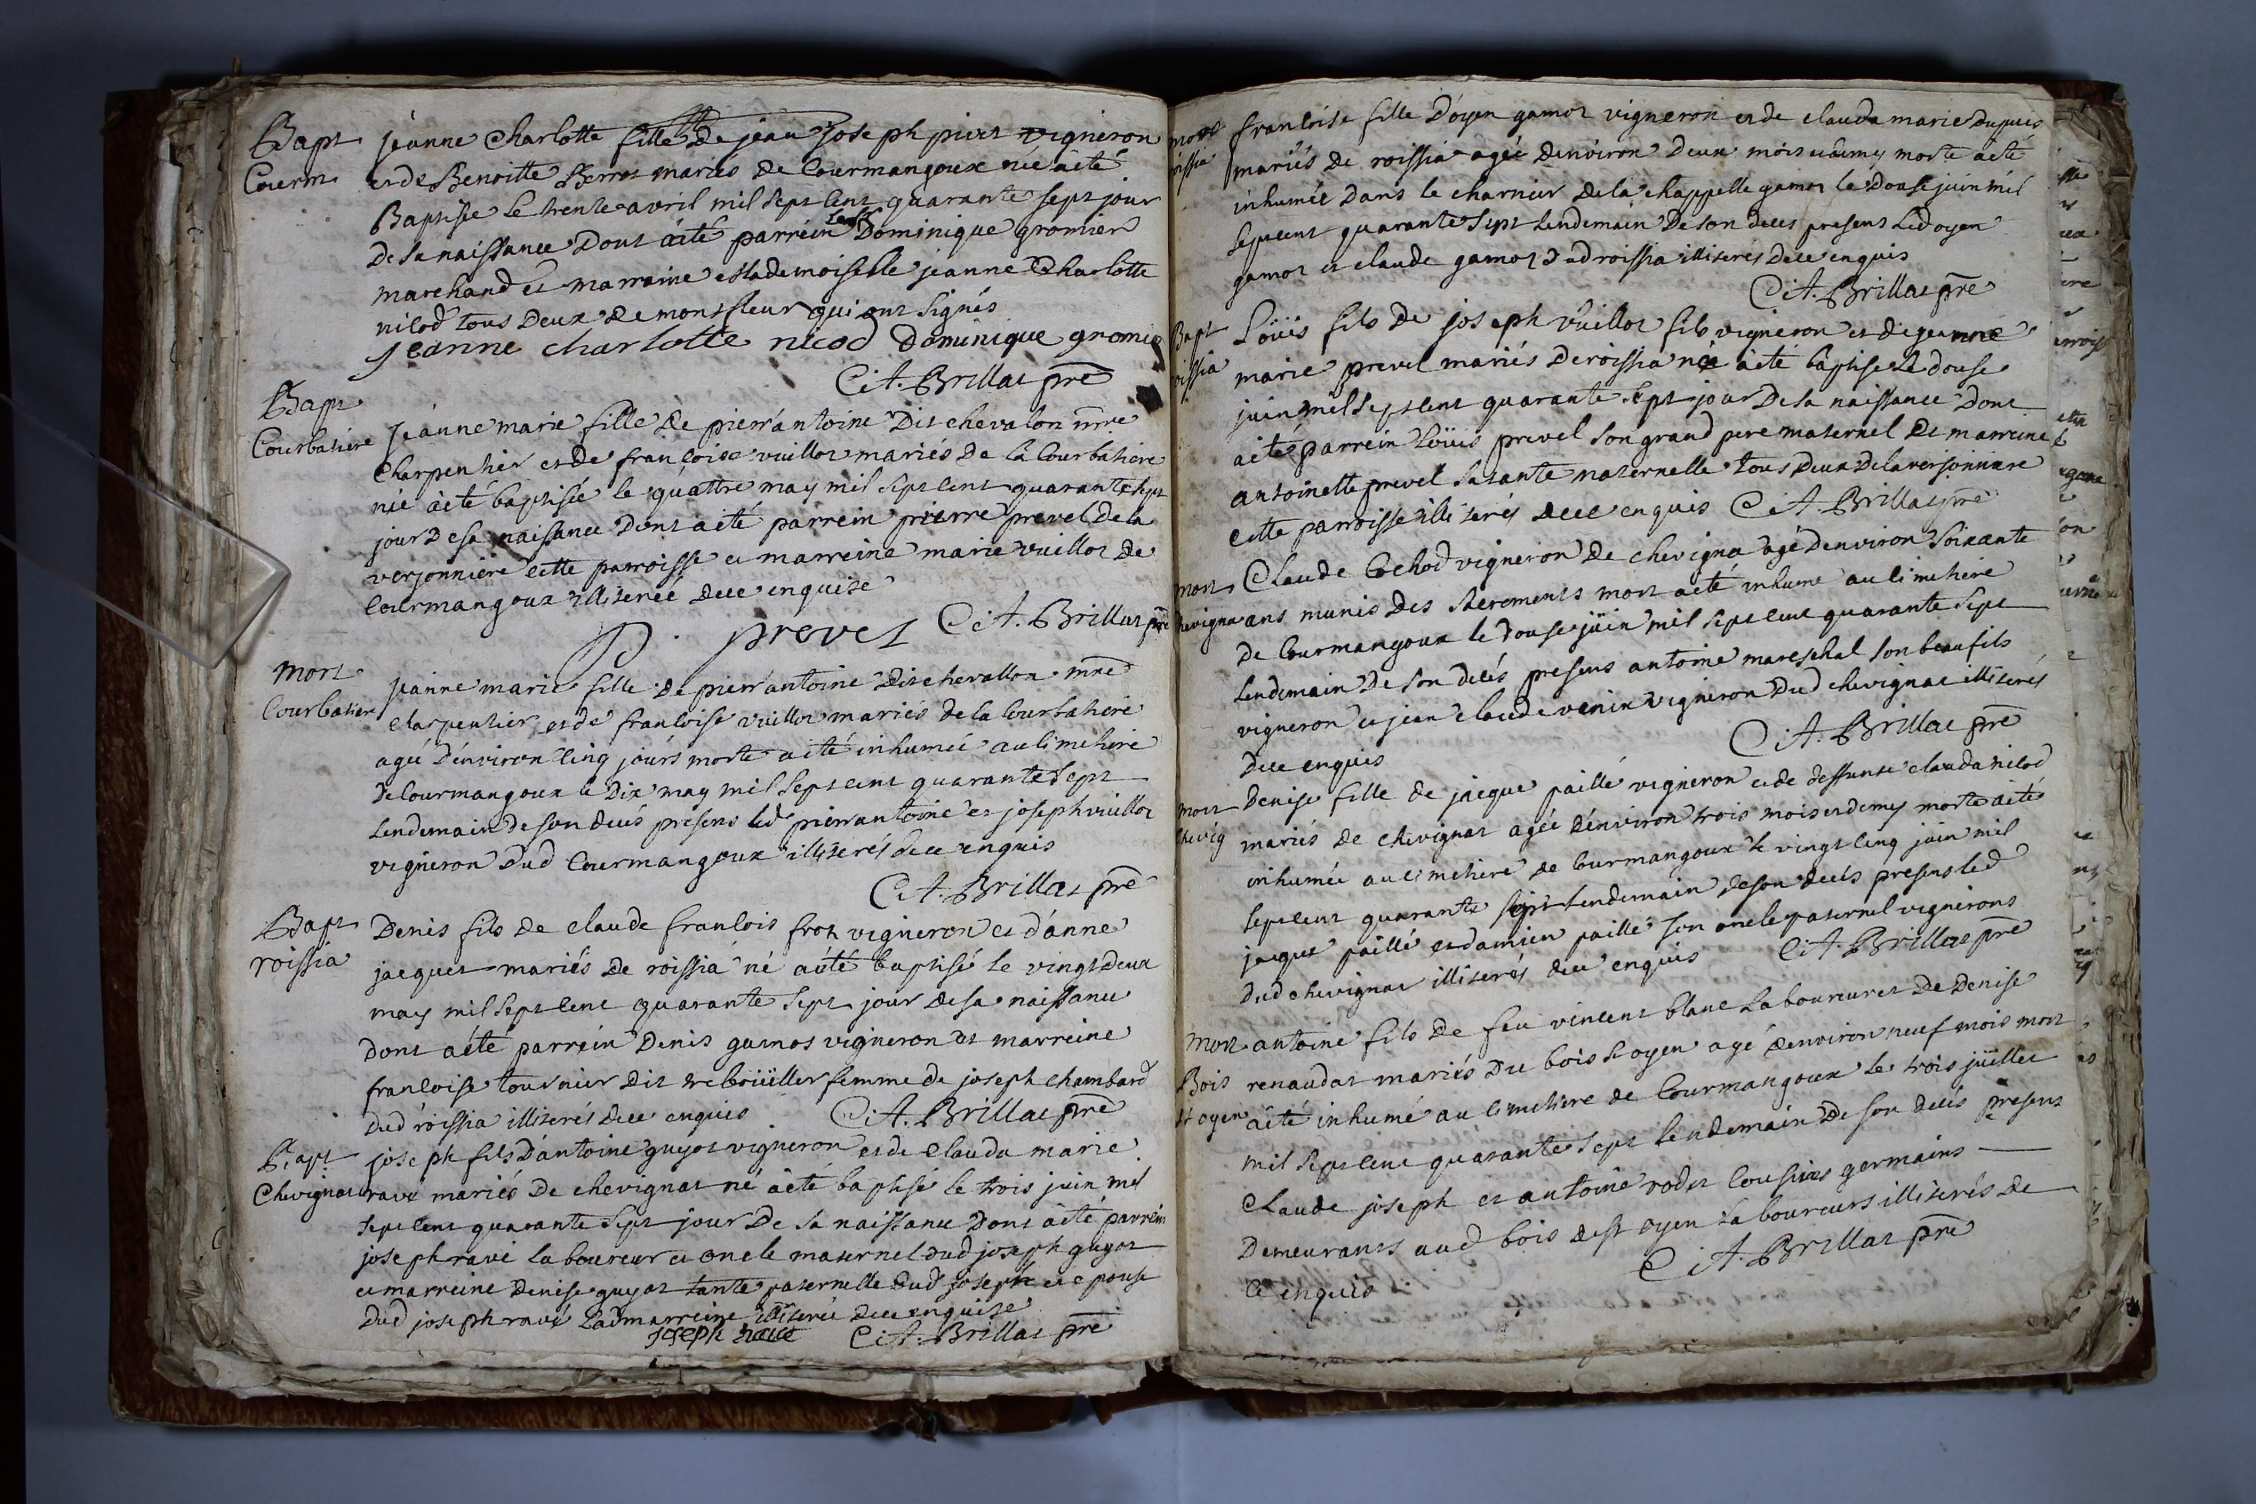 Bapt
Courm
jeanne Charlotte fille de jean joseph pivet vigneron
et de Benoitte Berrot mariés de Courmangoux née acté
Baptisée le trente avril mil sept cent quarante sept jour
de sa naissance dont àété parrein le sr Dominique gromier
marchand et marraine est lademoiselle jeanne Charlotte
nicod tous deux de montfleur qui ont signés
jeanne charlotte nicod Dominique gromier
C: A. Brillat pre
Bapt
Courbatiere
jeanne marie fille de pierr'antoine dit chevalon mre
Charpentier et de françoise vuillot mariés de la Courbatiere
née àeté baptisée le quattre may mil sept cent quarante sept
jour de sa naissance dont aété parrein pierre prevel de la
verjonniere cette parroisse et marreine marie vuillot de
Courmangoux illiterée de ce enquise
P. prevel C: A. Brillat pre
mort
Courbatiere
jeanne marie fille de pierr'antoine dit chevallon mre
charpentier et de françoise vuillot mariés de la Courbatiere
agée d'environ cinq jours morte aété inhumée au cimetiere
de Courmangoux le dix may mil sept cent quarante sept
lendemain de son decés presens led pierr'antoine et joseph vuillot
vigneron dud Courmangoux illiterés de ce enquis
C: A. Brillat pre
Bapt
roissia
Denis fils de claude françois frot vigneron et d'anne
jacquet mariés de roissia né aété baptisé le vingt deux
may mil sept cent quarante sept jour de sa naissance
dont aété parrein Denis gamos vigneron et marreine
françoise tournier dit reboüiller femme de joseph chambard
dud roissia illiterés de ce enquis C: A. Brillat pre
Bapt
Chevignat
joseph fils d'antoine guyot vigneron et de Clauda marie
ravé mariés de chevignat né aété baptisé le trois juin mil
sept cent quarante sept jour de sa naissance dont àété parrein
joseph ravé laboureur et oncle maternel dud joseph guyot
et marreine denise guyot tante paternelle dud joseph et epouse
dud joseph ravé Ladmarreine illiterée de ce enquise
joseph ravé C: A. Brillat pre
mort
roissia
françoise fille d'oyen gamot vigneron et de clauda marie dupuis
mariés de roissia agée d'environ deux mois et demy morte aété
inhumée dans le charnier de la chappelle gamot le douse juin mil
sept cent quarante sept lendemain de son decés presens led oyen
gamot et claude gamot dud roissia illiterés de ce enquis
C: A. Brillat pre
Bapt
roissia
Loüis fils de joseph vuillot fils vigneron et de jeanne
marie prevel mariés de roissia né àété baptisé le douse
juin mil sept cent quarante sept jour de sa naissance dont
aété parrein Loüis prevel son grand pere maternel et marreine
antoinette prevel sa tante maternelle tous deux de la verjonniere
cette parroisse illiterés de ce enquis C: A. Brillat pre
mort
chevigna
Claude Cochod vigneron de chevigna agé d'environ soixante
ans munis des sacrements mort aété inhumé au cimetiere
de Courmangoux le douse juin mil sept cent quarante sept
lendemain de son decés presens antoine mareschal son beau fils
vigneron et jean claude venin vigneron dud chevignat illiterés
de ce enquis
C: A. Brillat pre
mort
chevig
Denise fille de jacque paillé vigneron et de deffunte clauda nicod
mariés de chevignat agée d'environ trois mois et demy morte aété
inhumée au cimetiere de Courmangoux le vingt cinq juin mil
sept cent quarante sept lendemain de son decés presens led
jacque paillé et damien paillé son oncle paternel vignerons
dud chevignat illiterés de ce enquis C: A. Brillat pre
mort
Bois
st oyen
antoine fils de feu vincent blanc laboureur et de Denise
renaudat mariés du bois st oyen agé d'environ neuf mois mort
àété inhumé au cimetiere de Courmangoux le trois jüillet
mil sept cent quarante sept lendemain de son decés presens
Claude joseph et antoine rodet cousins germains
demeurants aud bois de st oyen laboureurs illiterés de
ce enquis
C: A. Brillat pre